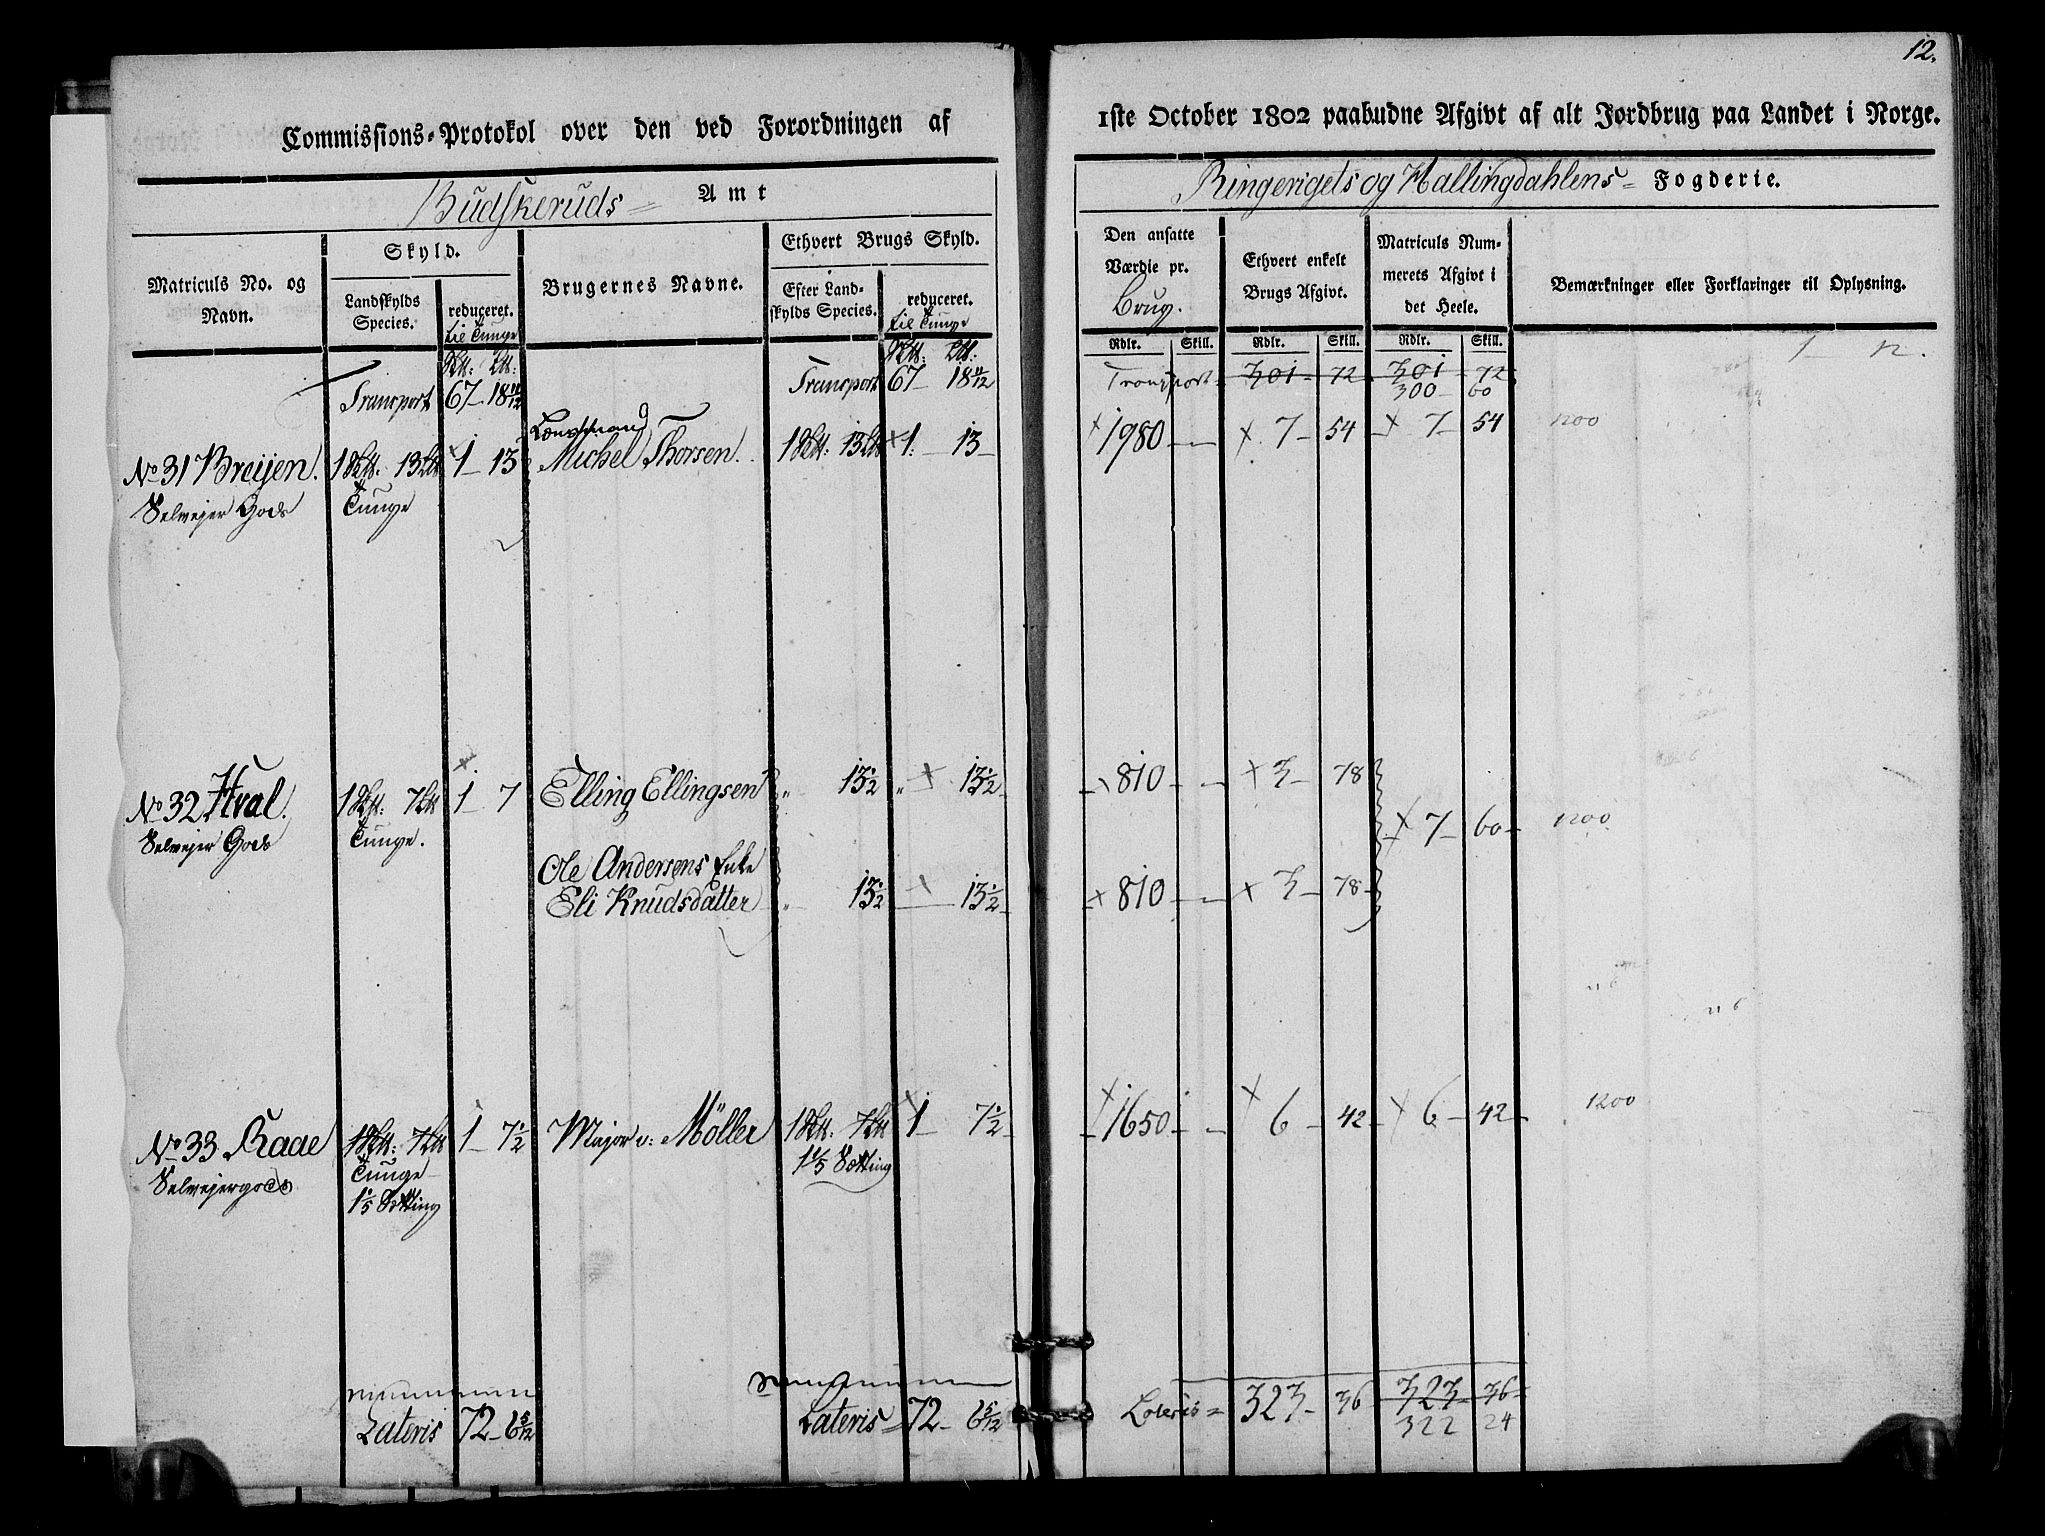 12.
Commissions-Protokol over den ved Forordningen af
1ste October 1802 paabudne Afgivt af alt Jordbrug paa Landet i Norge.
Budskeruds Amt
Ringerigets og Hallingdahlens Fogderie.
Matriculs No. og Navn.
Skyld.
Landskylds Species.
reduceret.
til Tunge
Brugernes Navne.
Ethvert Brugs Skyld.
Efter Landskylds Species.
reduceret.
til Tunge
Den ansatte Værdie pr.
Brug.
Ethvert enkelt Brugs Afgivt.
Matriculs Nummerets Afgivt i det Heele.
Bemærkninger eller Forklaringer til Oplysning.
Rdlr. Skill. Rdlr. Skill. Rdlr. Skill.
Transport 67 18 11/12 Transport 67 18 11/12 Transport 301 72 301 72
300 60
Lænsmand
No 31 Breijen. 1 13 1 13 Michel Thorsen. 1 13 1. 13 1980 7 54 7 54 1200
Selvejer Gods Tunge
No 32 Hval. 1 7 1 7 Elling Ellingsen 13 1/2 13 1/2 810 3 78
Selvejer Gods Tunge. 7 60 1200
Ole Andersens Enke
Eli Knudsdatter 13 1/2 13 1/2 810 3 78
No 33 Kaae 1 7 1 7 1/2 Major v: Möller 1 7 1 7 1/2 1650 6 42 6 42 1200
Selvejergods Tunge 1 1/5 Setting
1 1/5 Setting
Lateris 72 6 5/12 Lateris 72 6 5/12 Lateris 323 36 323 36
322 24